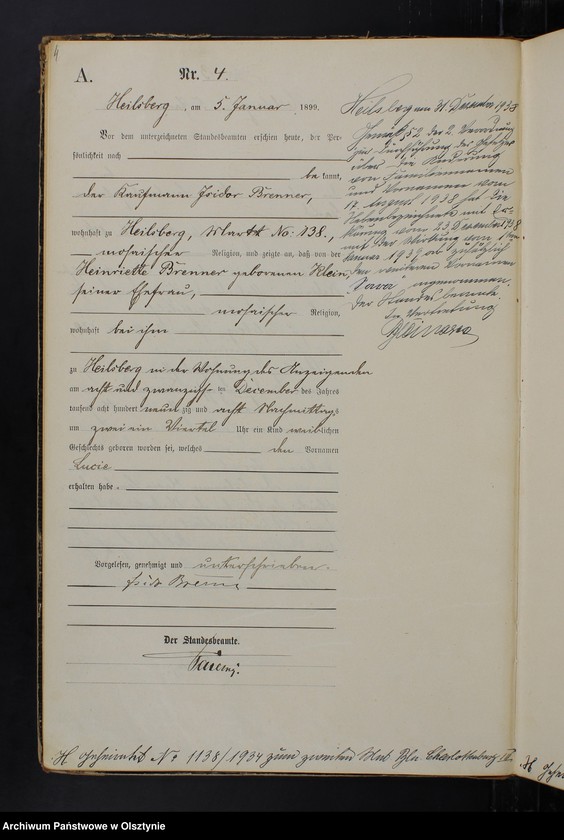 4
A.
Nr. 4.
Heilsberg, am 5. Januar 1899.
Vor dem unterzeichneten Standesbeamten erschien heute, der Per-
sönlichkeit nach
be kannt,
der Kaufmann Isidor Brenner,
wohnhaft zu Heilsberg, Markt No: 138.,
mosaischer Religion, und zeigte an, daß von der
Henriette Brenner geborenen Klein,
seiner Ehefrau,
mosaischer Religion,
wohnhaft bei ihm
zu Heilsberg in der Wohnung des Anzeigenden
am acht und zwanzigsten December des Jahres
tausend acht hundert neun zig und acht Nachmittags
um zwei ein Viertel Uhr ein Kind weiblichen
Geschlechts geboren worden sei, welches den Vornamen
Lucie
erhalten habe.
Vorgelesen, genehmigt und unterschrieben.
Isidor Brenner
Der Standesbeamte.
Heilsberg am 31. Dezember 1938
Gemäß § 2 der 2. Verordnung
zur Durchführung des Gesetzes
über die Änderung
von Familiennamen
und Vornamen vom
17. August 1938 hat die
Nebenbezeichnete mit Er-
klärung vom Dezember 1938
mit der Wirkung vom 1. Ja-
nuar 1939 ab zusätzlich
den weiteren Vornamen
Sara angenommen.
Der Standesbeamte
In Vertretung
H. Geheiratet No 1138/1934 zum zweiten Mal Bln. Charlottenburg
Archiwum Państwowe w Olsztynie